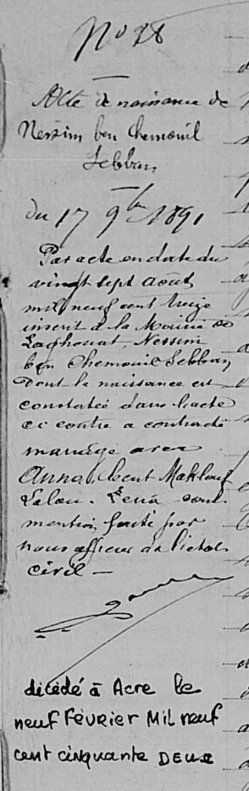 N° 28
Acte de naissance de
Nessim ben Chemouil
Sebban
du 17 9bre 1891
Par acte en date du
vingt sept août
mil neuf cent treize
inscrit à la Mairie de
Laghouat, Nessim
ben Chemouil Sebban
Dont la naissance est
constatée dans l'acte
ci contre a contracté
mariage avec
Anna bent Makhlouf
Lalou. dont
mention faite par
nous officier de l'état
civil
décédé à Acre le
neuf Février Mil neuf
cent cinquante Deux